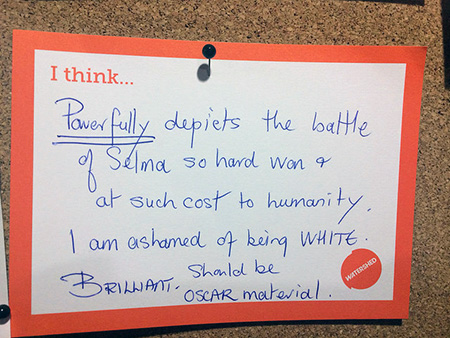 I think...
Powerfully depicts the battle
of Selma so hard won &
at such cost to humanity.
I am ashamed of being WHITE.
BRILLIANT. Should be
OSCAR material.
WATERSHED